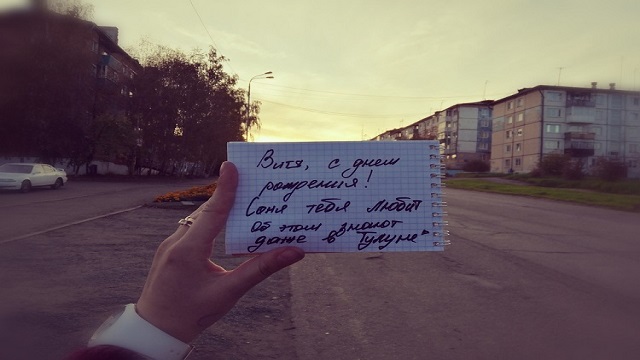 Витя, с днем
рождения!
Соня тебя любит
Об этом знают
даже в "Тулуне"